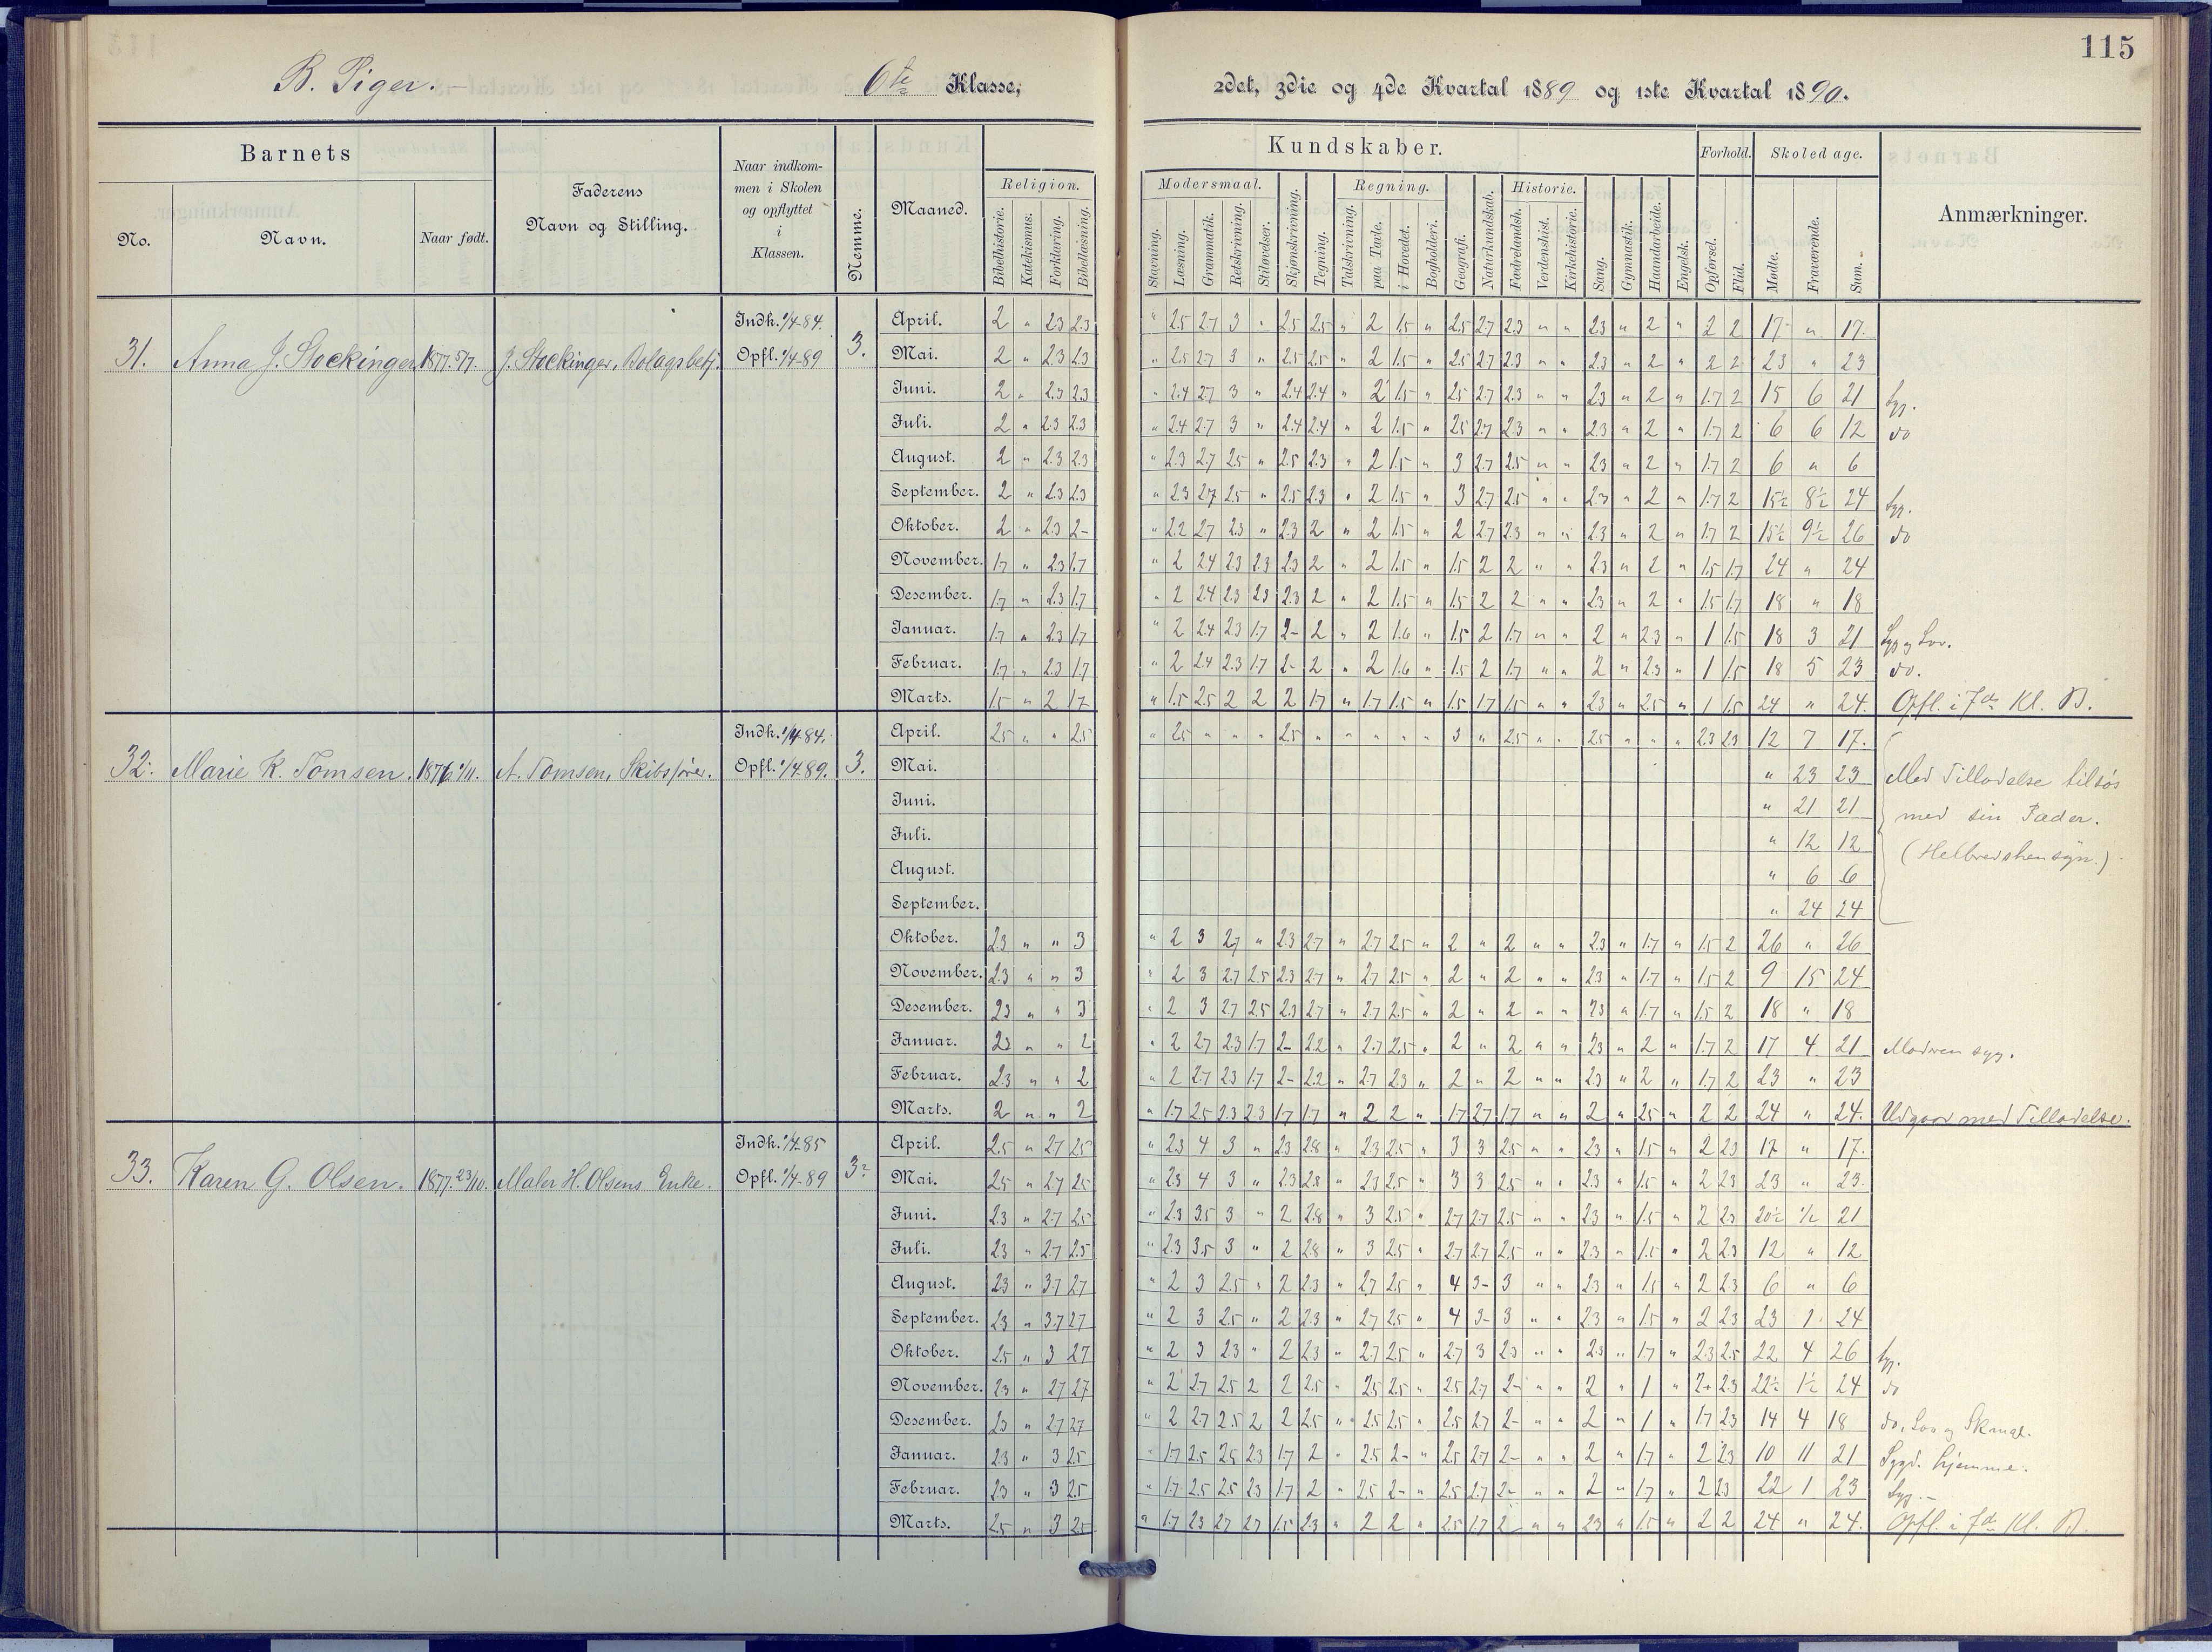 115
B. Piger. 6te Klasse, 2det, 3die og 4de Kvartal 1889 og 1ste Kvartal 1890.
Barnets
Kundskaber. Forhold. Skoledage.
No. Navn. Naar født. Faderens Navn og Stilling. Naar indkommen i Skolen og opflyttet i Klassen. Nemme. Maaned. Religion. Modersmaal. Regning. Historie. Anmærkninger.
Bibelhistorie. Katekismus. Forklaring. Bibellæsning. Stavning. Læsning. Grammatik. Retskrivning. Stiløvelser. Skjønskrivning. Tegning. Talskrivning. paa Tavle. i Hovedet. Bogholderi. Geografi. Naturkundskab. Fædrelandsh. Verdenshist. Kirkehistorie. Sang. Gymnastik. Haandarbeide. Engelsk. Opførsel. Flid. Mødte. Fraværende. Sum.
31. Anna J. Stockinger 1877. 5/7. J. Stockinger, Bolagsbetj. Indk. 1/4-84. Opfl. 1/4-89 3.
April. 2 " 2.3 2.3 " 2.5 2.7 3 " 2.5 2.5 " 2 1.5 " 2.5 2.7 2.3 " " 2.3 " 2 " 2 2 17 " 17.
Mai. 2 " 2.3 2.3 " 2.5 2.7 3 " 2.5 2.5 " 2 1.5 " 2.5 2.7 2.3 " " 2.3 " 2 " 2 2 23 " 23
Juni. 2 " 2.3 2.3 " 2.4 2.7 3 " 2.4 2.4 " 2 1.5 " 2.5 2.7 2.3 " " 2.3 " 2 " 1.7 2 15 6 21 Syg.
Juli. 2 " 2.3 2.3 " 2.4 2.7 3 " 2.4 2.4 " 2 1.5 " 2.5 2.7 2.3 " " 2.3 " 2 " 1.7 2 6 6 12 do
August. 2 " 2.3 2.3 " 2.3 2.7 2.5 " 2.5 2.3 " 2 1.5 " 3 2.7 2.5 " " 2.3 " 2 " 1.7 2 6 " 6
September. 2 " 2.3 2.3 " 2.3 2.7 2.5 " 2.5 2.3 " 2 1.5 " 3 2.7 2.5 " " 2.3 " 2 " 1.7 2 15½ 8½ 24 Syg.
Oktober. 2 " 2.3 2- " 2.2 2.7 2.3 " 2.3 2 " 2 1.5 " 2 2.7 2.3 " " 2.3 " 2 " 1.7 2 15½ 9½ 26 do
November. 1.7 " 2.3 1.7 " 2 2.4 2.3 2.3 2.3 2 " 2 1.5 " 1.5 2 2 " " 2.3 " 2 " 1.5 1.7 24 " 24
Desember. 1.7 " 2.3 1.7 " 2 2.4 2.3 2.3 2.3 2 " 2 1.5 " 1.5 2 2 " " 2.3 " 2 " 1.5 1.7 18 " 18
Januar. 1.7 " 2.3 1.7 " 2 2.4 2.3 1.7 2- 2 " 2 1.6 " 1.5 2 1.7 " " 2 " 2.3 " 1 1.5 18 3 21 Syg og Lov.
Februar. 1.7 " 2.3 1.7 " 2 2.4 2.3 1.7 2- 2 " 2 1.6 " 1.5 2 1.7 " " 2 " 2.3 " 1 1.5 18 5 23 do.
Marts. 1.5 " 2 1.7 " 1.5 2.5 2 2 2 1.7 " 1.7 1.5 " 1.5 1.7 1.5 " " 2.3 " 2.5 " 1 1.5 24 " 24. Opfl. i 7de Kl. B.
32. Marie K. Tomsen. 1876 1/11. A. Tomsen, Skibsfører. Indk. 1/4-84. Opfl. 1/4-89. 3.
April. 2.5 " " 2.5 " 2.5 " " " 2.5 " " " " " 3 " 2.5 " " 2.5 " " " 2.3 2.3 12 7 17.
Mai. " 23 23 Med Tilladelse tilsøs
Juni. " 21 21 med sin Fader.
Juli. " 12 12 (Helbredshensyn.)
August. " 6 6
September. " 24 24
Oktober. 2.3 " " 3 " 2 3 2.7 " 2.3 2.7 " 2.7 2.5 " 2 " 2 " " 2.3 " 1.7 " 1.5 2 26 " 26
November. 2.3 " " 3 " 2 3 2.7 2.5 2.3 2.7 " 2.7 2.5 " 2 " 2 " " 2.3 " 1.7 " 1.5 2 9 15 24
Desember. 2.3 " " 3 " 2 3 2.7 2.5 2.3 2.7 " 2.7 2.5 " 2 " 2 " " 2.3 " 1.7 " 1.5 2 18 " 18
Januar. 2.3 " " 2 " 2 2.7 2.3 1.7 2- 2.2 " 2.7 2.5 " 2 " 2 " " 2.3 " 2 " 1.7 2 17 4 21 Modren syg.
Februar. 2.3 " " 2 " 2 2.7 2.3 1.7 2- 2.2 " 2.7 2.3 " 2 " 2 " " 2.3 " 2 " 1.7 2 23 " 23
Marts. 2 " " 2 " 1.7 2.5 2.3 2.3 1.7 1.7 " 2 2 " 1.7 2.7 1.7 " " 2 " 2.5 " 2 2 24 " 24. Udgaar med Tilladelse.
33. Karen G. Olsen. 1877. 23/10. Maler H. Olsens Enke. Indk. 1/4-85 Opfl. 1/4-89 3-
April. 2.5 " 2.7 2.5 " 2.3 4 3 " 2.3 2.8 " 2.3 2.5 " 3 3 2.5 " " 2.3 " 1.5 " 2 2.3 17 " 17.
Mai. 2.5 " 2.7 2.5 " 2.3 4 3 " 2.3 2.8 " 2.3 2.5 " 3 3 2.5 " " 2.3 " 1.5 " 2 2.3 23 " 23.
Juni. 2.3 " 2.7 2.5 " 2.3 3.5 3 " 2 2.8 " 3 2.5 " 2.7 2.7 2.5 " " 2.3 " 1.5 " 2 2.3 20½ ½ 21
Juli. 2.3 " 2.7 2.5 " 2.3 3.5 3 " 2 2.8 " 3 2.5 " 2.7 2.7 2.5 " " 2.3 " 1.5 " 2 2.3 12 " 12
August. 2.3 " 3.7 2.7 " 2 3 2.5 " 2 2.3 " 2.7 2.5 " 4 3- 3 " " 2.3 " 1.5 " 2 2.3 6 " 6
September. 2.3 " 3.7 2.7 " 2 3 2.5 " 2 2.3 " 2.7 2.5 " 4 3- 3 " " 2.3 " 1.5 " 2 2.3 23 1 24
Oktober. 2.5 " 3 2.7 " 2 3 2.3 " 2 2.3 " 2.7 2.5 " 2.7 3 2.3 " " 2.3 " 1.7 " 2.3 2.5 22 4 26 Syg.
November. 2.3 " 2.7 2.7 " 2 2.7 2.5 2 2 2.5 " 2.5 2.5 " 2.5 2.7 2- " " 2 " 1 " 2+ 2.3 22½ 1½ 24 do
Desember. 2.3 " 2.7 2.7 " 2 2.7 2.5 2 2 2.5 " 2.5 2.5 " 2.5 2.7 2- " " 2 " 1 " 1.7 2.3 14 4 18 do, Lov og
Januar. 2.3 " 3 2.5 " 1.7 2.5 2.5 2.3 1.7 2 " 2.5 2- " 2.5 2.7 2- " " 2 " 1.7 " 2 2.3 10 11 21 Sygd. hjemme.
Februar. 2.3 " 3 2.5 " 1.7 2.5 2.5 2.3 1.7 2 " 2.5 2- " 2.5 2.7 2- " " 2 " 1.7 " 2 2.3 22 1 23 Syg.-
Marts. 2.5 " 3 2.5 " 1.7 2.3 2.7 2.7 1.5 2.3 " 2 2 " 2.5 1.7 2 " " 2.3 " 1.5 " 2 2 24 " 24. Opfl. i 7de Kl. B.